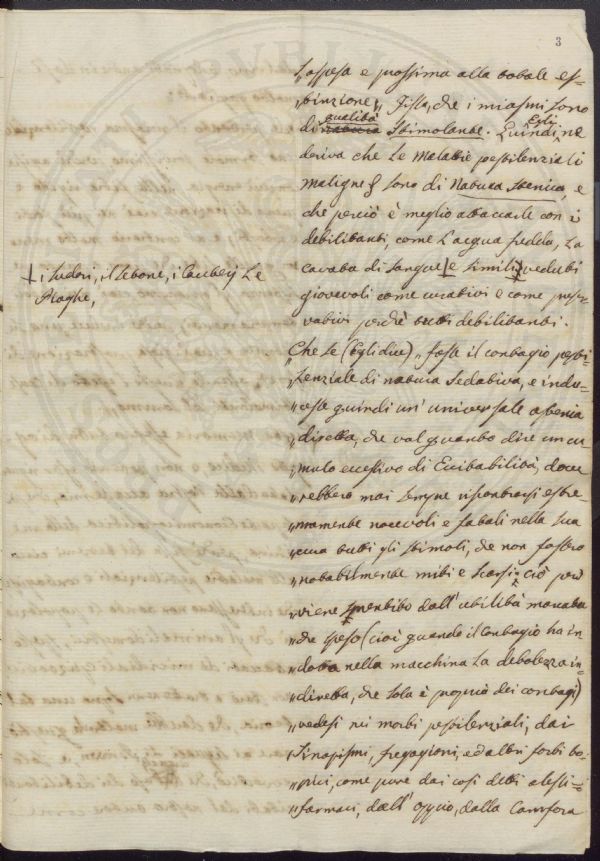 3
Lassesa e prossima alla totale es-
„tinzione„ Fissa, che i miasmi sono
di qualità natura Stimolante. Quindi Egli ne
deriva che Le Malattie pestilenziali
Maligne sono di Natura Stenica, e
che perciò è meglio attaccarle con i
debilitanti, come L'acqua fredda, La
cavata di Sangue, e simili, veduti
giovevoli come curativi e come preser-
vativi perchè tutti debilitanti.
i Sudori, il Setone, i Cauterj Le
Piaghe,
„Che Se (Egli dice) „ fosse il contagio pesti-
„lenziale di natura Sedativa, e indu-
„cesse quindi un' universale astenia
„diretta, che val quanto dire un cu-
„mulo eccessivo di Eccitabilità, dove
„rebbero mai sempre riscontrarsi estre-
„mamente nocevoli e fatali nella sua
„cura tutti gli stimoli, che non fossero
„notabilmente miti e scarsi: ciò però
„viene smentito dall' utilità marcata
„che spesso (cioè quando il Contagio ha in
„dotta nella macchina La debolezza in-
„diretta, che sola è propria dei contagj)
„vedesi nei morbi pestilenziali, dai
„Sinapismi, fregagioni, ed altri forti to-
„pici, come pure dai così detti alessi-
„farmaci, dall' oppio, dalla Camfora